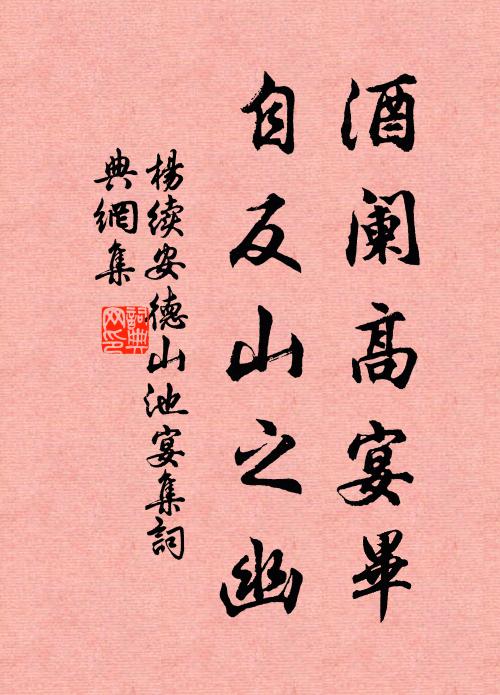 酒阑高宴畢
自反山之幽
楊续安德山池宴集詞
典網集
詞典
网印